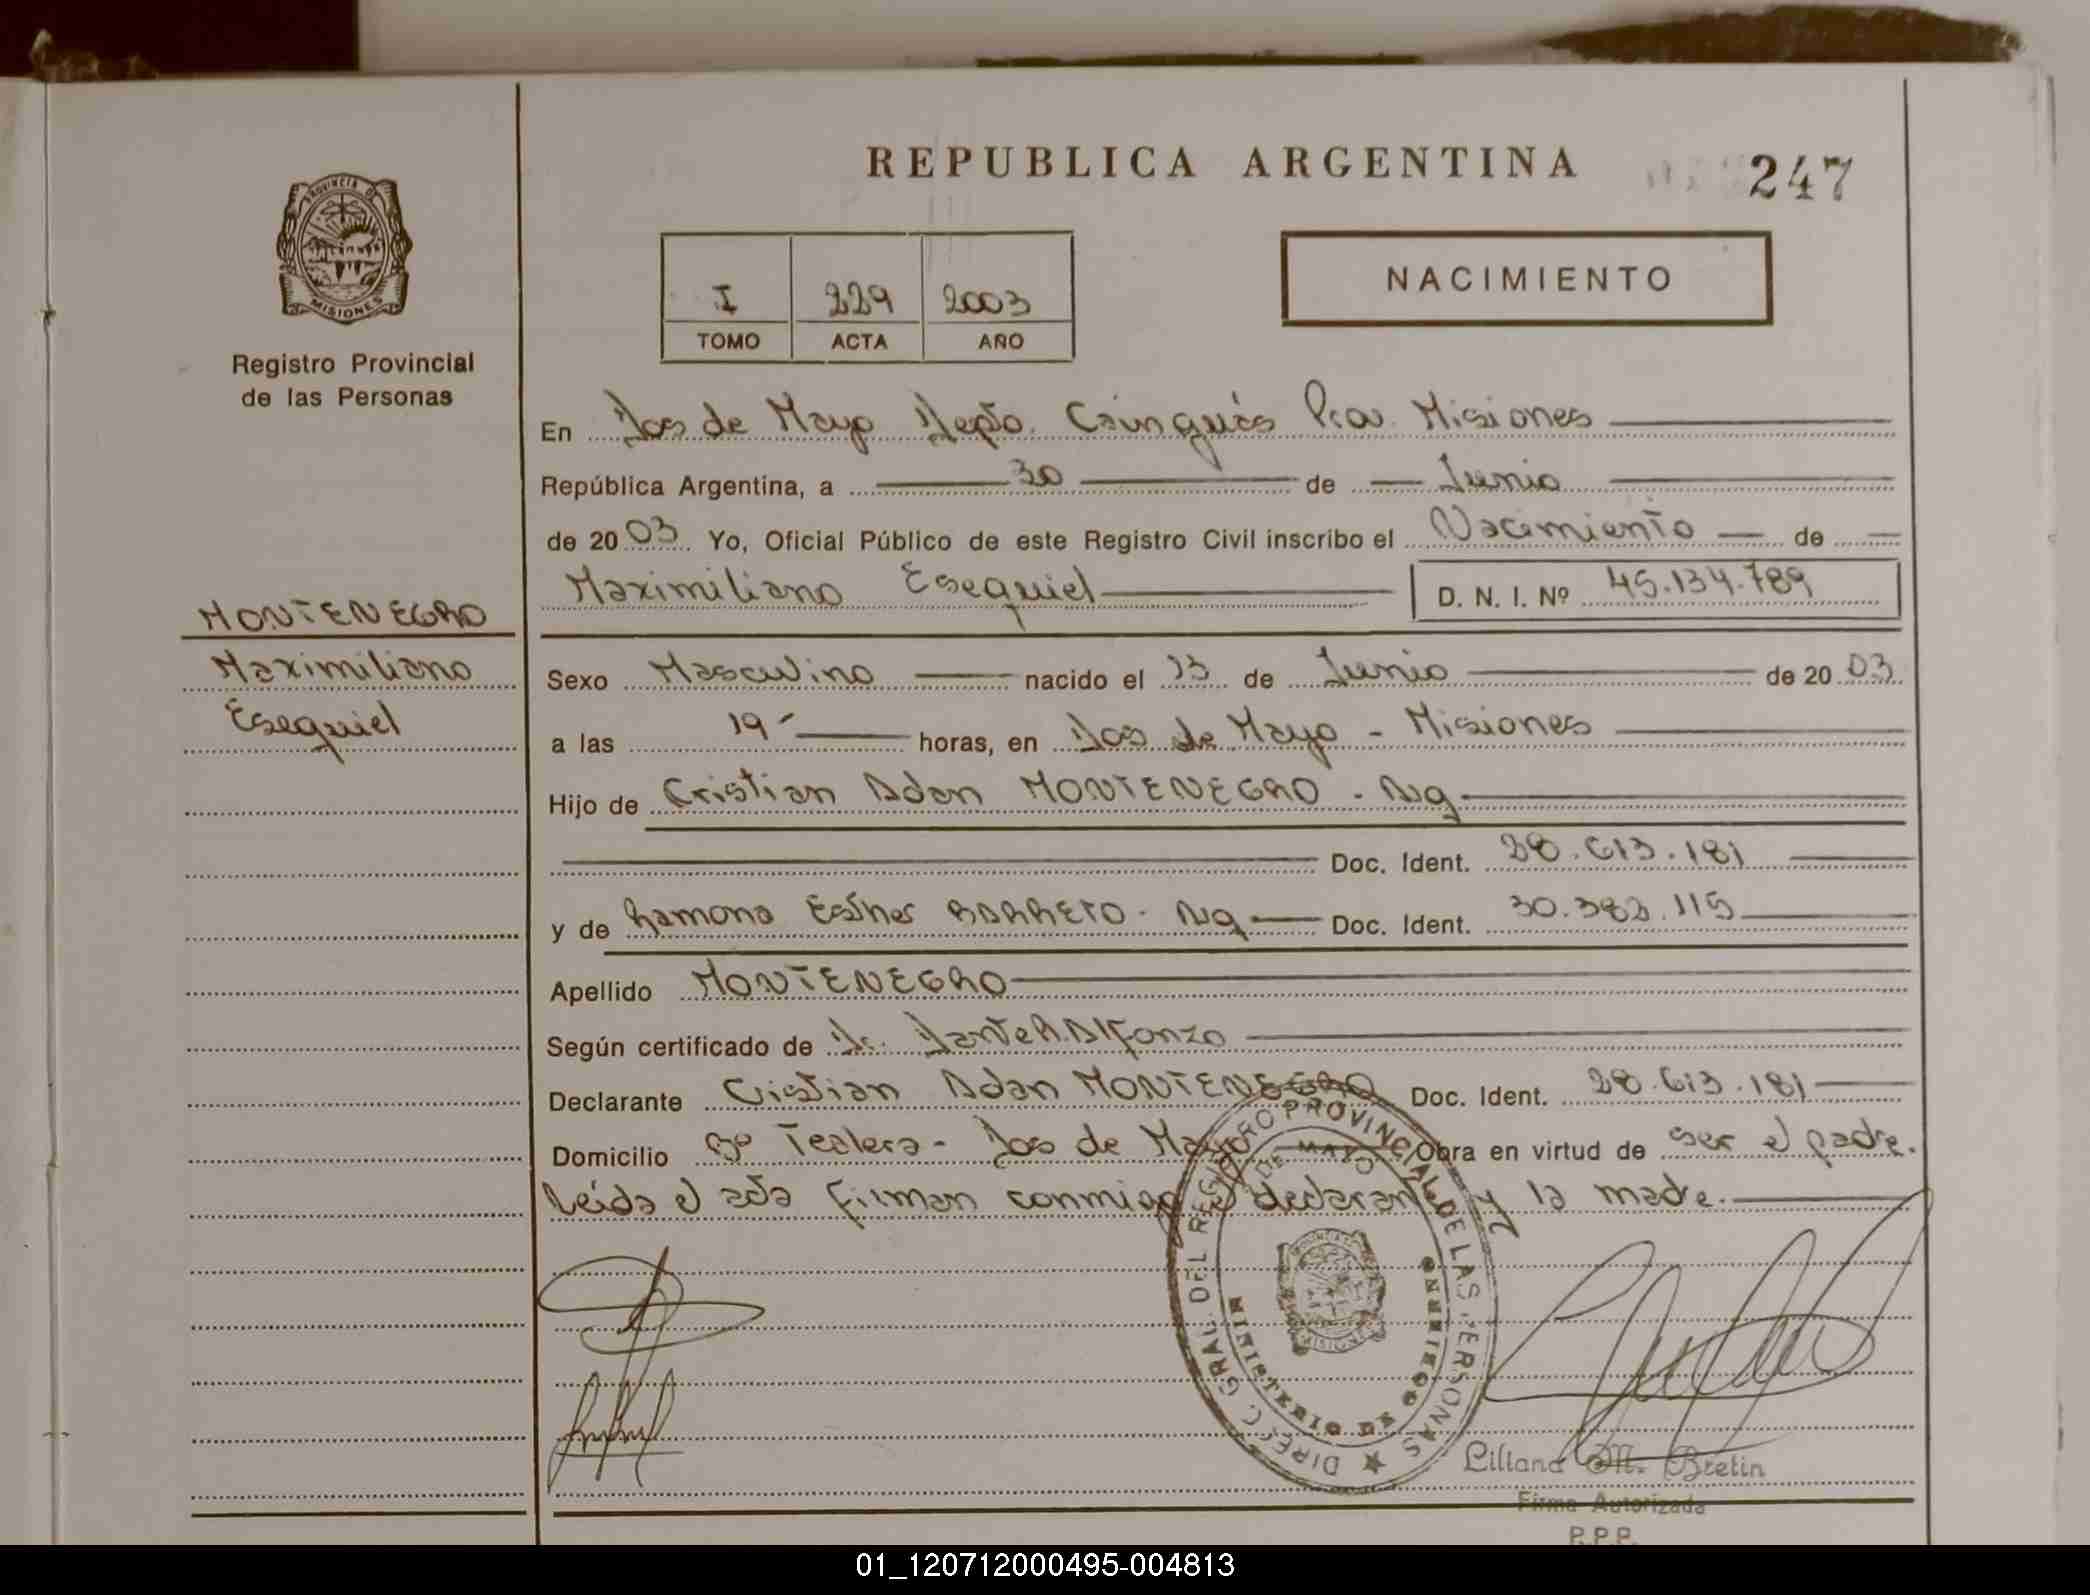 REPUBLICA ARGENTINA
247
PROVINCIA DE
MISIONES
Registro Provincial
de las Personas
I 229 2003
TOMO ACTA AÑO
NACIMIENTO
En Dos de Mayo Depto. Cainguás Prov. Misiones
República Argentina, a 30 de Junio
de 2003. Yo, Oficial Público de este Registro Civil inscribo el Nacimiento de
Maximiliano Esequiel D. N. I. Nº 45.134.789
MONTENEGRO
Maximiliano
Esequiel
Sexo Masculino nacido el 13 de Junio de 2003
a las 19 horas, en Dos de Mayo - Misiones
Hijo de Cristian Adan MONTENEGRO - Ag
Doc. Ident. 28.613.181
y de Ramona Esther BARRETO - Ag Doc. Ident. 30.382.115
Apellido MONTENEGRO
Según certificado de Dr. Dante R. Alfonzo
Declarante Cristian Adan MONTENEGRO Doc. Ident. 28.613.181
Domicilio Bº Tealera - Dos de Mayo Obra en virtud de ser el padre.
Leída el acta firman conmigo el declarante y la madre.
DIREC. GRAL. DEL REGISTRO PROVINCIAL DE LAS PERSONAS
2 DE MAYO
MINISTERIO DE GOBIERNO
Liliana M. Bretin
Firma Autorizada
R.P.P.
01_120712000495-004813